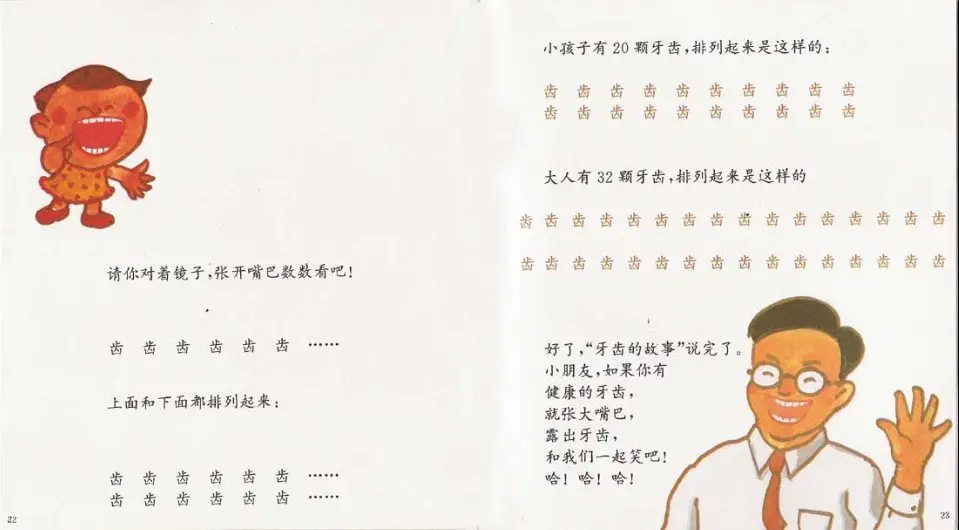 请你对着镜子,张开嘴巴数数看吧!
齿 齿 齿 齿 齿 齿 ……
上面和下面都排列起来:
齿 齿 齿 齿 齿 齿 ……
齿 齿 齿 齿 齿 齿 ……
22
小孩子有 20 颗牙齿,排列起来是这样的:
齿 齿 齿 齿 齿 齿 齿 齿 齿 齿
齿 齿 齿 齿 齿 齿 齿 齿 齿 齿
大人有 32 颗牙齿,排列起来是这样的
齿 齿 齿 齿 齿 齿 齿 齿 齿 齿 齿 齿 齿 齿 齿 齿
齿 齿 齿 齿 齿 齿 齿 齿 齿 齿 齿 齿 齿 齿 齿 齿
好了,“牙齿的故事”说完了。
小朋友,如果你有
健康的牙齿,
就张大嘴巴,
露出牙齿,
和我们一起笑吧!
哈! 哈! 哈!
23